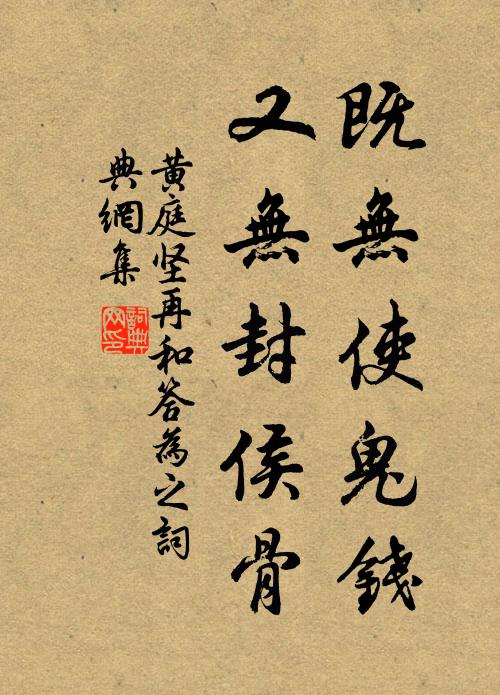 既無使鬼錢
又無封侯骨
黄庭坚再和答為之詞
典網集
詞典
网印